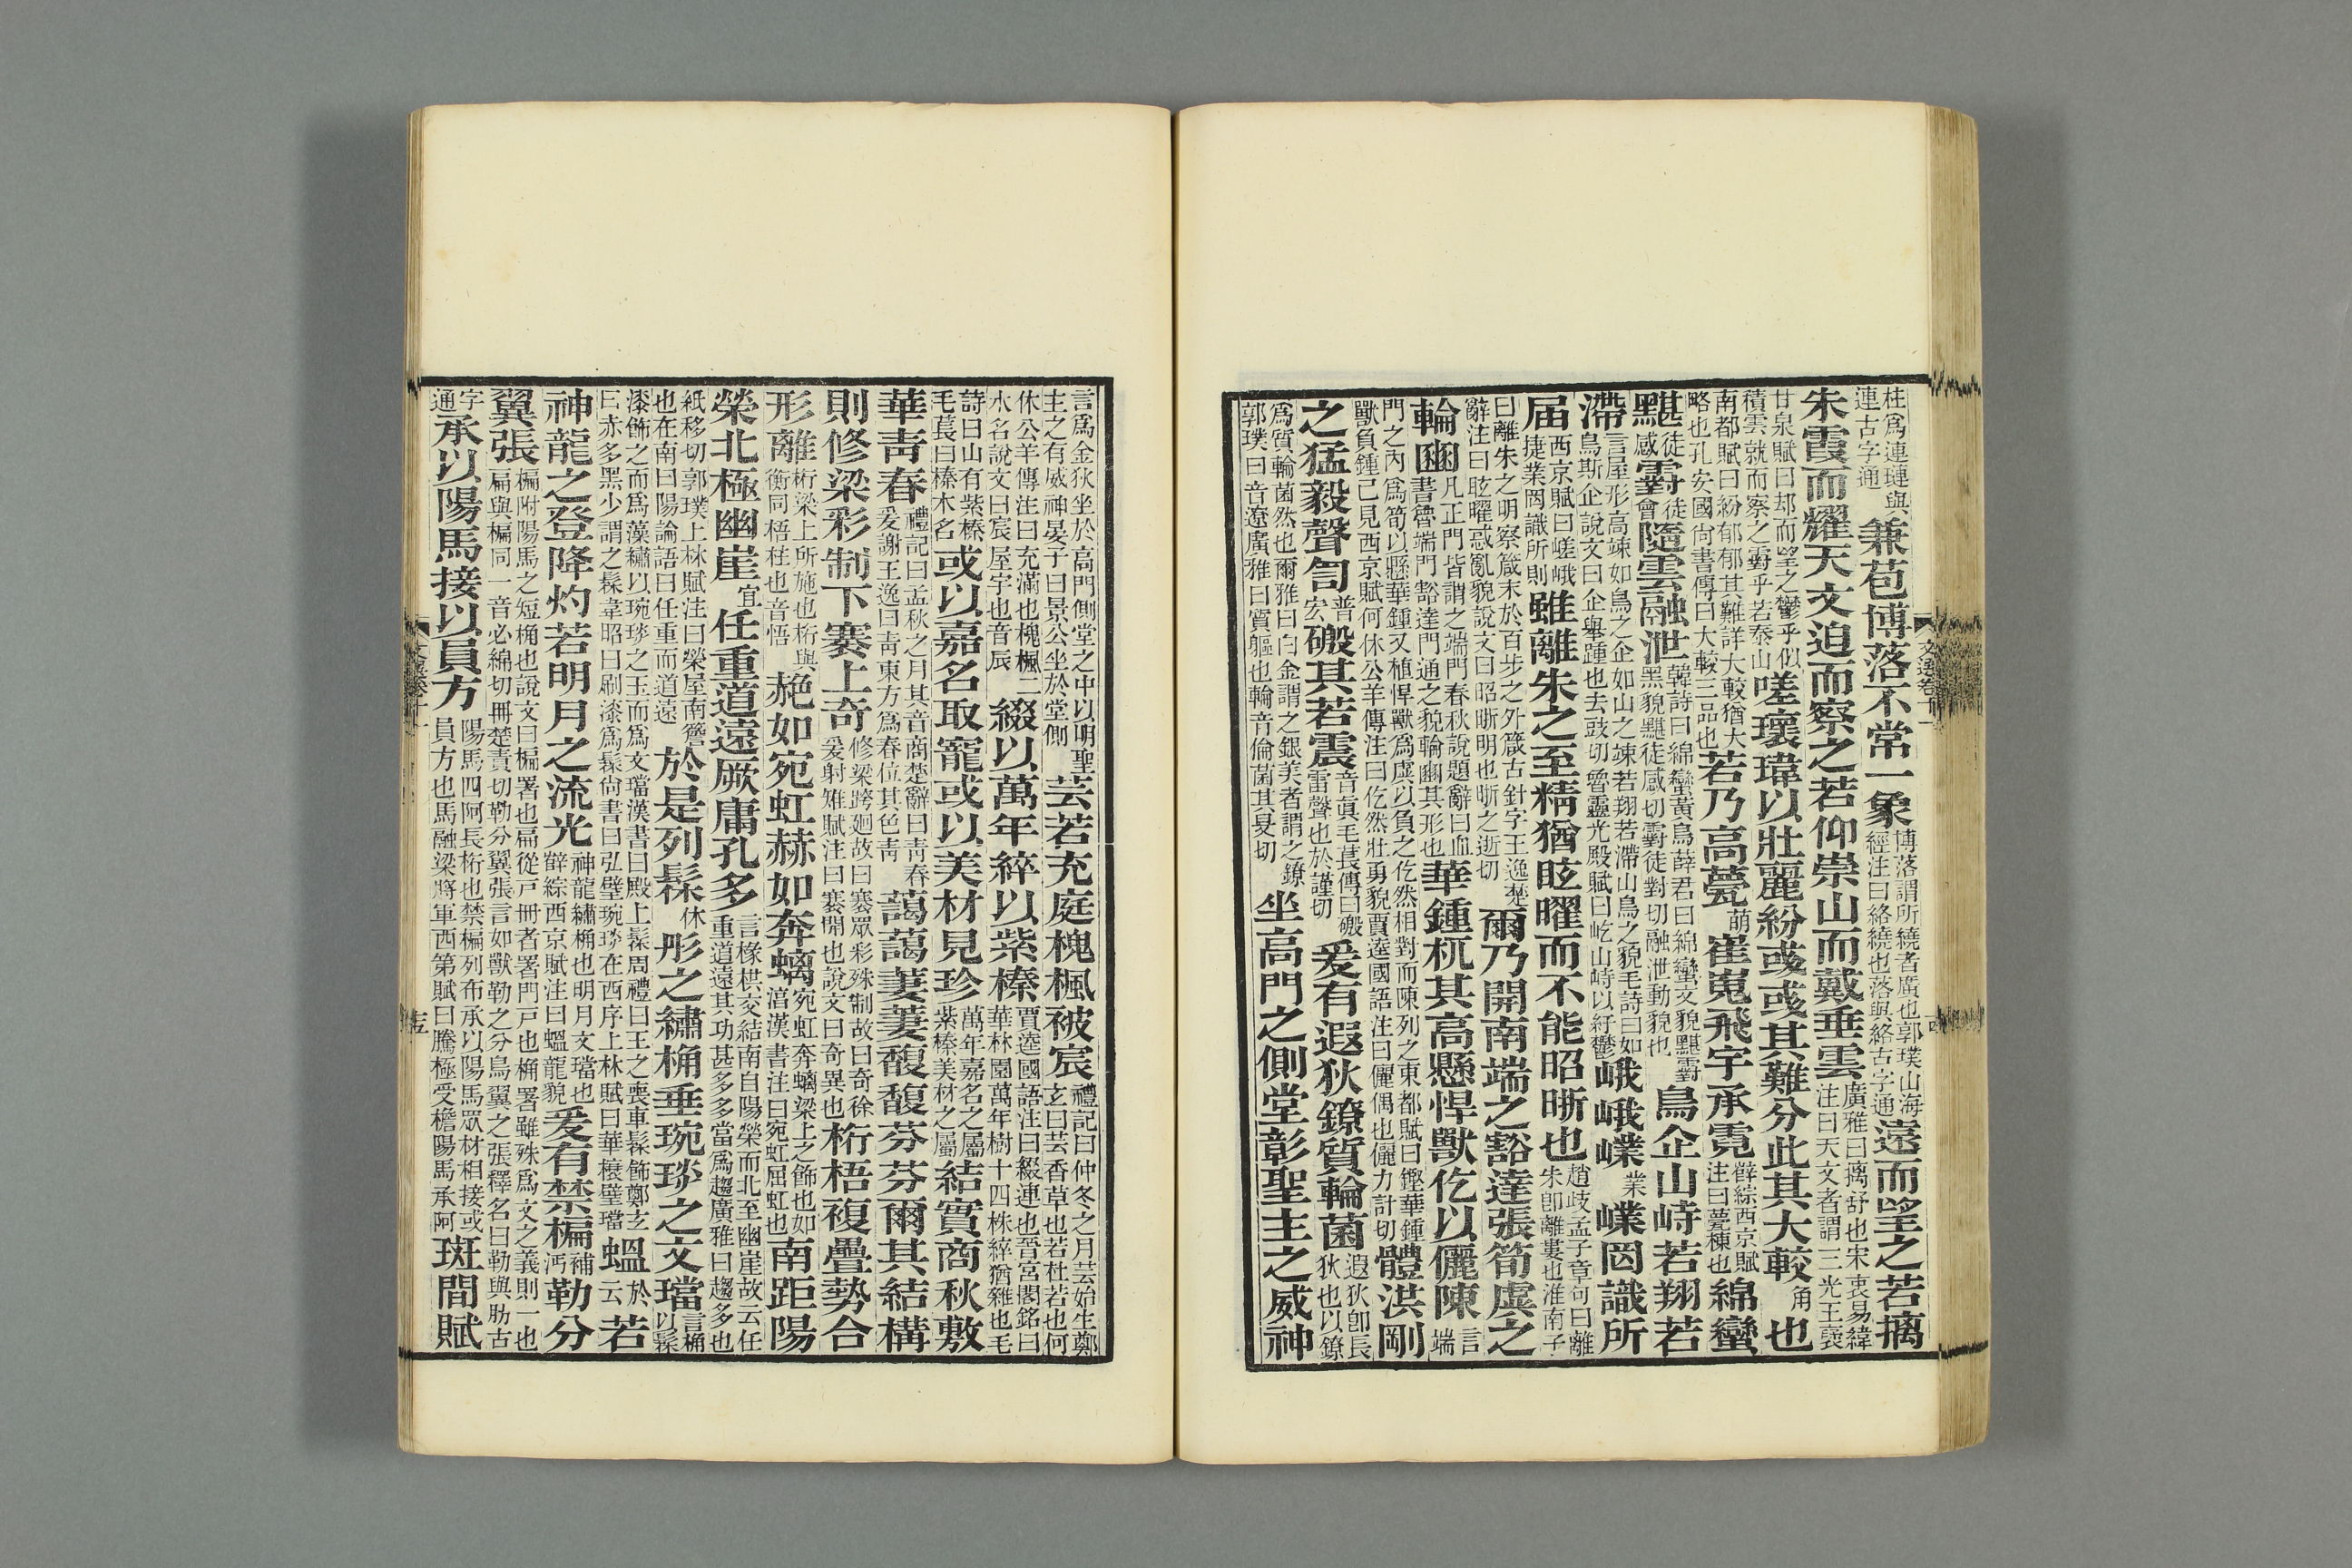 柱爲連璉璉與連古字通兼苞博落不常一象博落謂所繞者廣也郭璞山海經注曰絡繞也落與絡古字通遠而望之若摛
朱霞而耀天文迫而察之若仰崇山而戴垂雲廣雅曰摛舒也宋衷易緯注曰天文者謂三光王襃
甘泉賦曰却而望之鬱乎似積雲就而察之霨乎若泰山嗟瓌瑋以壯麗紛彧彧其難分此其大較角也
南都賦曰紛郁郁其難詳大較猶大略也孔安國尚書傳曰大較三品也若乃高甍萌崔嵬飛宇承霓薛綜西京賦注曰甍棟也綿蠻
黮徒感霴徒會隨雲融泄韓詩曰綿蠻黃鳥薛君曰綿蠻文貌黮霴黑貌黮徒感切霴徒對切融泄動貌也鳥企山峙若翔若
滯言屋形高竦如鳥之企如山之竦若翔若滯山鳥之貌毛詩曰如鳥斯企說文曰企舉踵也去豉切魯靈光殿賦曰屹山峙以紆鬱峨峨嶫業嶫罔識所
届西京賦曰嵯峨捷業罔識所則雖離朱之至精猶眩曜而不能昭晣也趙歧孟子章句曰離朱卽離婁也淮南子
曰離朱之明察箴末於百步之外箴古針字王逸楚辭注曰眩曜惑亂貌說文曰昭晣明也晣之逝切爾乃開南端之豁達張筍虡之
輪豳凡正門皆謂之端門春秋說題辭曰血書魯端門豁達門通之貌輪豳其形也華鍾杌其高懸悍獸仡以儷陳言端
門之內爲筍以懸華鍾又植悍獸爲虡以負之仡然相對而陳列之東都賦曰鏗華鍾獸負鍾已見西京賦何休公羊傳注曰仡然壯勇貌賈逵國語注曰儷偶也儷力計切體洪剛
之猛毅聲訇普宏磤其若震音真毛萇傳曰磤雷聲也於謹切爰有遐狄鐐質輪菌遐狄卽長狄也以鐐
爲質輪菌然也爾雅曰白金謂之銀美者謂之鐐郭璞曰音遼廣雅曰質軀也輪音倫菌其旻切坐高門之側堂彰聖主之威神
文選卷十一
言爲金狄坐於高門側堂之中以明聖主之有威神晏子曰景公坐於堂側芸若充庭槐楓被宸禮記曰仲冬之月芸始生鄭玄曰芸香草也若杜若也何
休公羊傳注曰充滿也槐楓二木名說文曰宸屋宇也音辰綴以萬年綷以紫榛賈逵國語注曰綴連也晉宮閣銘曰華林園萬年樹十四株綷猶雜也毛
詩曰山有紫榛毛萇曰榛木名或以嘉名取寵或以美材見珍萬年嘉名之屬紫榛美材之屬結實商秋敷
華靑春禮記曰孟秋之月其音商楚辭曰靑春爰謝王逸曰靑東方爲春位其色靑藹藹萋萋馥馥芬芬爾其結構
則修梁彩制下褰上奇修梁跨迴故曰褰眾彩殊制故曰奇徐爰射雉賦注曰褰開也說文曰奇異也桁梧複疊勢合
形離桁梁上所施也桁與衡同梧柱也音悟赩如宛虹赫如奔螭宛虹奔螭梁上之飾也如淳漢書注曰宛虹屈虹也南距陽
榮北極幽崖宜任重道遠厥庸孔多言椽栱交結南自陽榮而北至幽崖故云任重道遠其功甚多多當爲趨廣雅曰趨多也
紙移切郭璞上林賦注曰榮屋南簷也在南曰陽論語曰任重而道遠於是列髹休彤之繡桷垂琬琰之文璫言桷以髹
漆飾之而爲藻繡以琬琰之玉而爲文璫漢書曰殿上髹周禮曰王之喪車髹飾鄭玄曰赤多黑少謂之髹韋昭曰刷漆爲髹尚書曰弘璧琬琰在西序上林賦曰華榱璧璫蝹於云若
神龍之登降灼若明月之流光神龍繡桷也明月文璫也薛綜西京賦注曰蝹龍貌爰有禁楄補沔勒分
翼張楄附陽馬之短桷也說文曰楄署也扁從戶冊者署門戶也桷署雖殊爲文之義則一也扁與楄同一音必綿切冊楚責切勒分翼張言如獸勒之分鳥翼之張釋名曰勒與肋古
字通承以陽馬接以員方陽馬四阿長桁也禁楄列布承以陽馬眾材相接或員方也馬融梁將軍西第賦曰騰極受檐陽馬承阿斑間賦